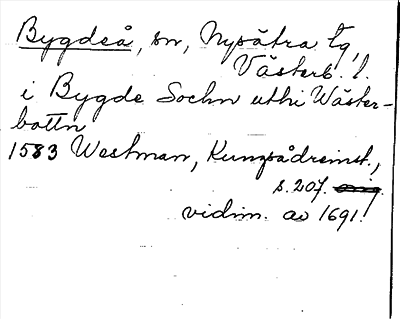 Bygdeå, sn, Nysätra tg,
Västerb. l.
i Bygde Sochn uthi Wäster-
bottn
1583 Westman, Kungsådreinst.,
s. 207. orig.
vidim. av 1691.